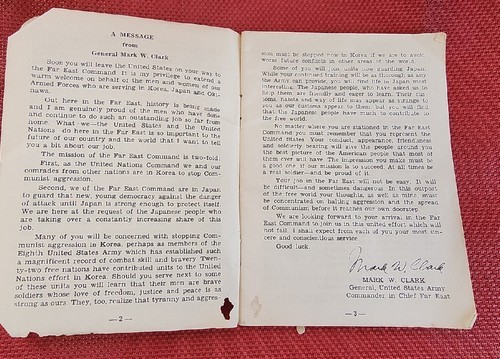 A MESSAGE
from
General Mark W. Clark
Soon you will leave the United States on your way to
the Far East Command. It is my privilege to extend a
warm welcome on behalf of the men and women of our
Armed Forces who are serving in Korea, Japan and Oki-
nawa.
Out here in the Far East, history is being made
and I am genuinely proud of the men who have done
and continue to do such an outstanding job so far from
home. What we—the United States and the United
Nations do here in the Far East is so important to the
future of our country and the world that I want to tell
you a bit about our job.
The mission of the Far East Command is two-fold:
First, as the United Nations Command we and our
comrades from other nations are in Korea to stop Com-
munist aggression.
Second, we of the Far East Command are in Japan
to guard that new young democracy against the danger
of attack until Japan is strong enough to protect itself.
We are here at the request of the Japanese people who
are taking over a constantly increasing share of this
job.
Many of you will be concerned with stopping Com-
munist aggression in Korea, perhaps as members of the
Eighth United States Army which has established such
a magnificent record of combat skill and bravery. Twen-
ty-two free nations have contributed units to the United
Nations effort in Korea. Should you serve next to some
of these units you will learn that their men are brave
soldiers whose love of freedom, justice and peace is as
strong as ours. They, too, realize that tyranny and aggres-
— 2 —
sion must be stopped now in Korea if we are to avoid
worse future conflicts in other areas of the world.
Some of you will join units now guarding Japan.
While your continued training will be as thorough as any
the Army can provide, you will find life in Japan most
interesting. The Japanese people, who have asked us to
help them, are friendly and eager to learn. Their cus-
toms, habits and way of life may appear as strange to you
as our customs appear to them but you will find
that the Japanese people have much to contribute to
the free world.
No matter where you are stationed in the Far East
Command you must remember that you represent the
United States. Your conduct, appearance, friendliness
and soldierly bearing will give the people around you
the best picture of the American people that most of
them ever will have. The impression you make must be
a good one if our mission is to succeed. At all times be
a real soldier—and be proud of it.
Your job in the Far East will not be easy. It will
be difficult—and sometimes dangerous. In this outpost
of the free world your thoughts, as well as mine, must
be concentrated on halting aggression and the spread
of Communism before it reaches our own doorway.
We are looking forward to your arrival in the Far
East Command to join us in this united effort which will
not fail. I shall expect from each of you your most sin-
cere and conscientious service.
Good luck.
Mark W Clark
MARK W. CLARK
General, United States Army
Commander in Chief Far East
— 3 —